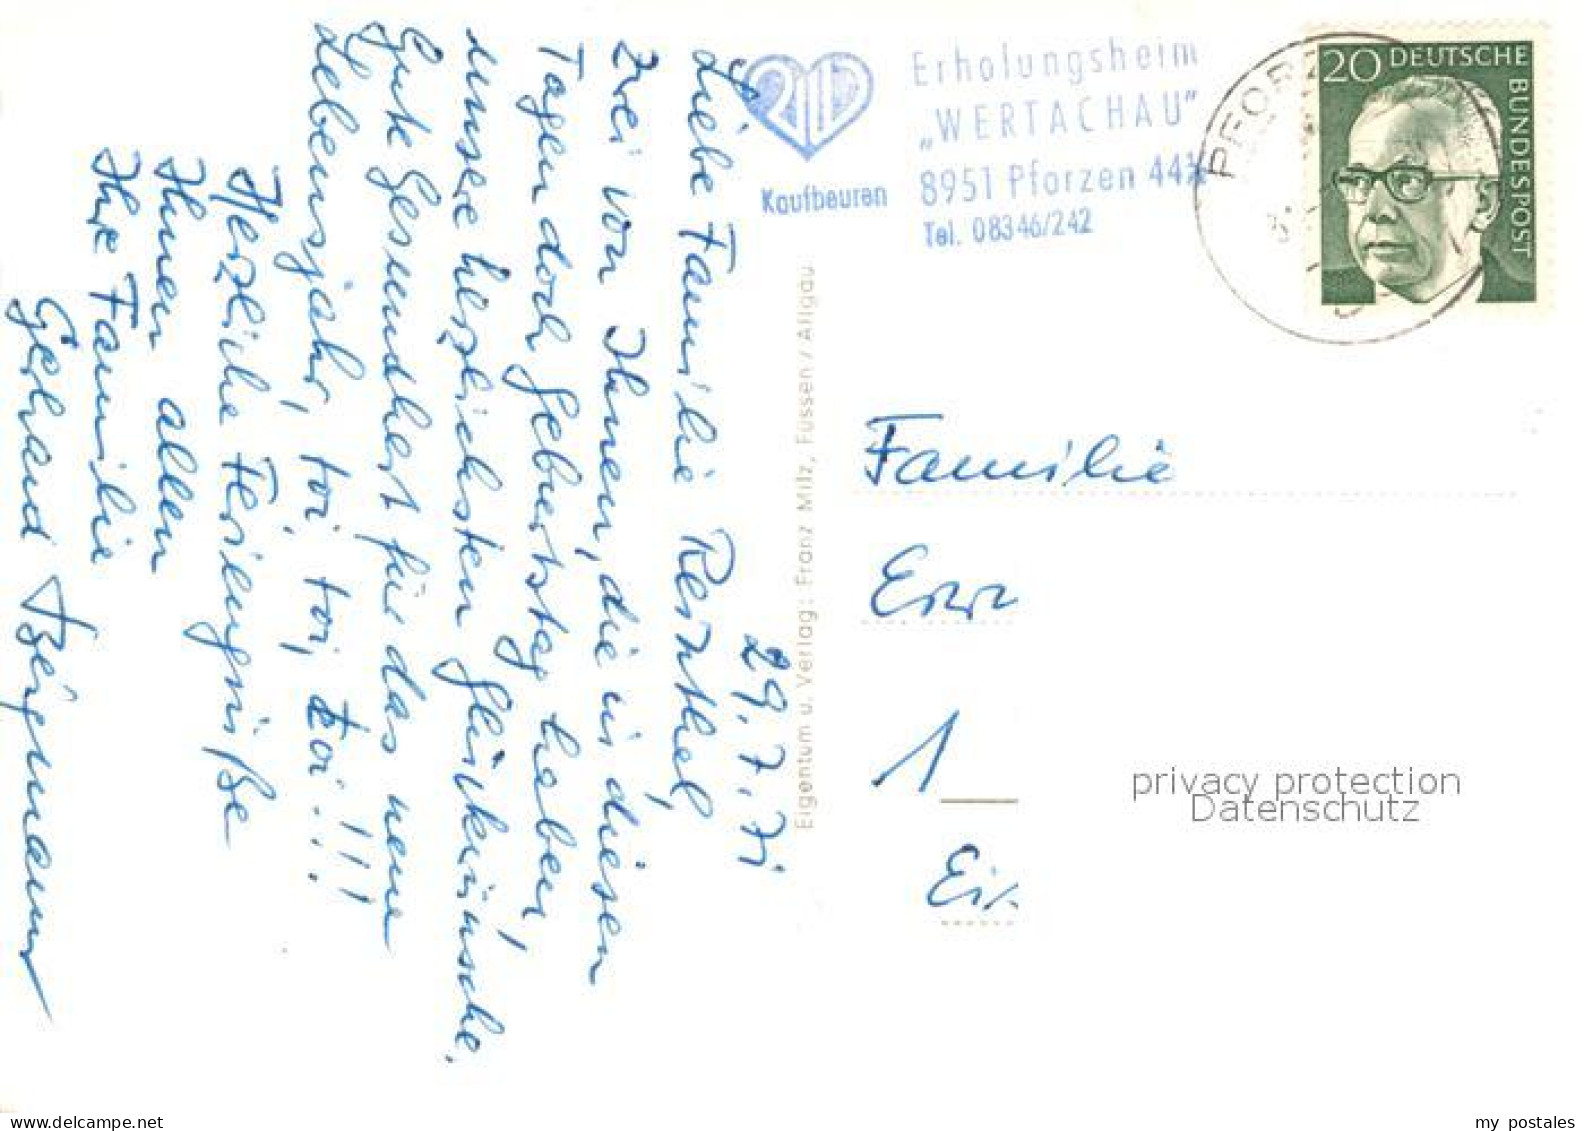 29.7.71
Liebe Familie Reinthal,
Zwei von Ihnen, die in diesen
Tagen doch Geburtstag haben,
unsere herzlichsten Glückwünsche.
Gute Gesundheit für das neue
Lebensjahr, toi, toi, toi!!!
Herzliche
Ihnen allen
Ihre Familie
Gerhard Bergmann
Eigentum u. Verlag: Franz Milz, Füssen / Allgäu
Kaufbeuren
Erholungsheim
„WERTACHAU"
8951 Pforzen 44½
Tel. 08346/242
PFORZ
20 DEUTSCHE
BUNDESPOST
Familie
1
privacy protection
Datenschutz
my postales